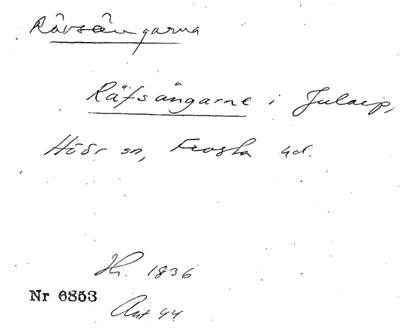 Rävsängarna
Räfsängarne i Jularp,
Höör sn, Frosta hd.
Jh. 1836
Nr 6853
Akt 44